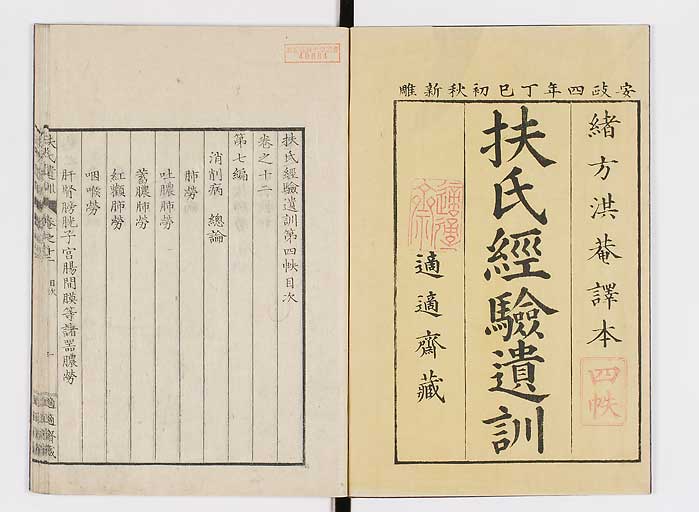 安政四年丁巳初秋新雕
緒方洪菴譯本
四帙
扶氏經驗遺訓
適適齋藏
扶氏經驗遺訓第四帙目次
卷之十二
第七編
消削病 總論
肺勞
吐膿肺勞
紅癜肺勞
咽喉勞
肝腎膀胱子宮腸間膜等諸器膿勞
扶氏遺訓 卷之十二 目次 一
適適齋藏